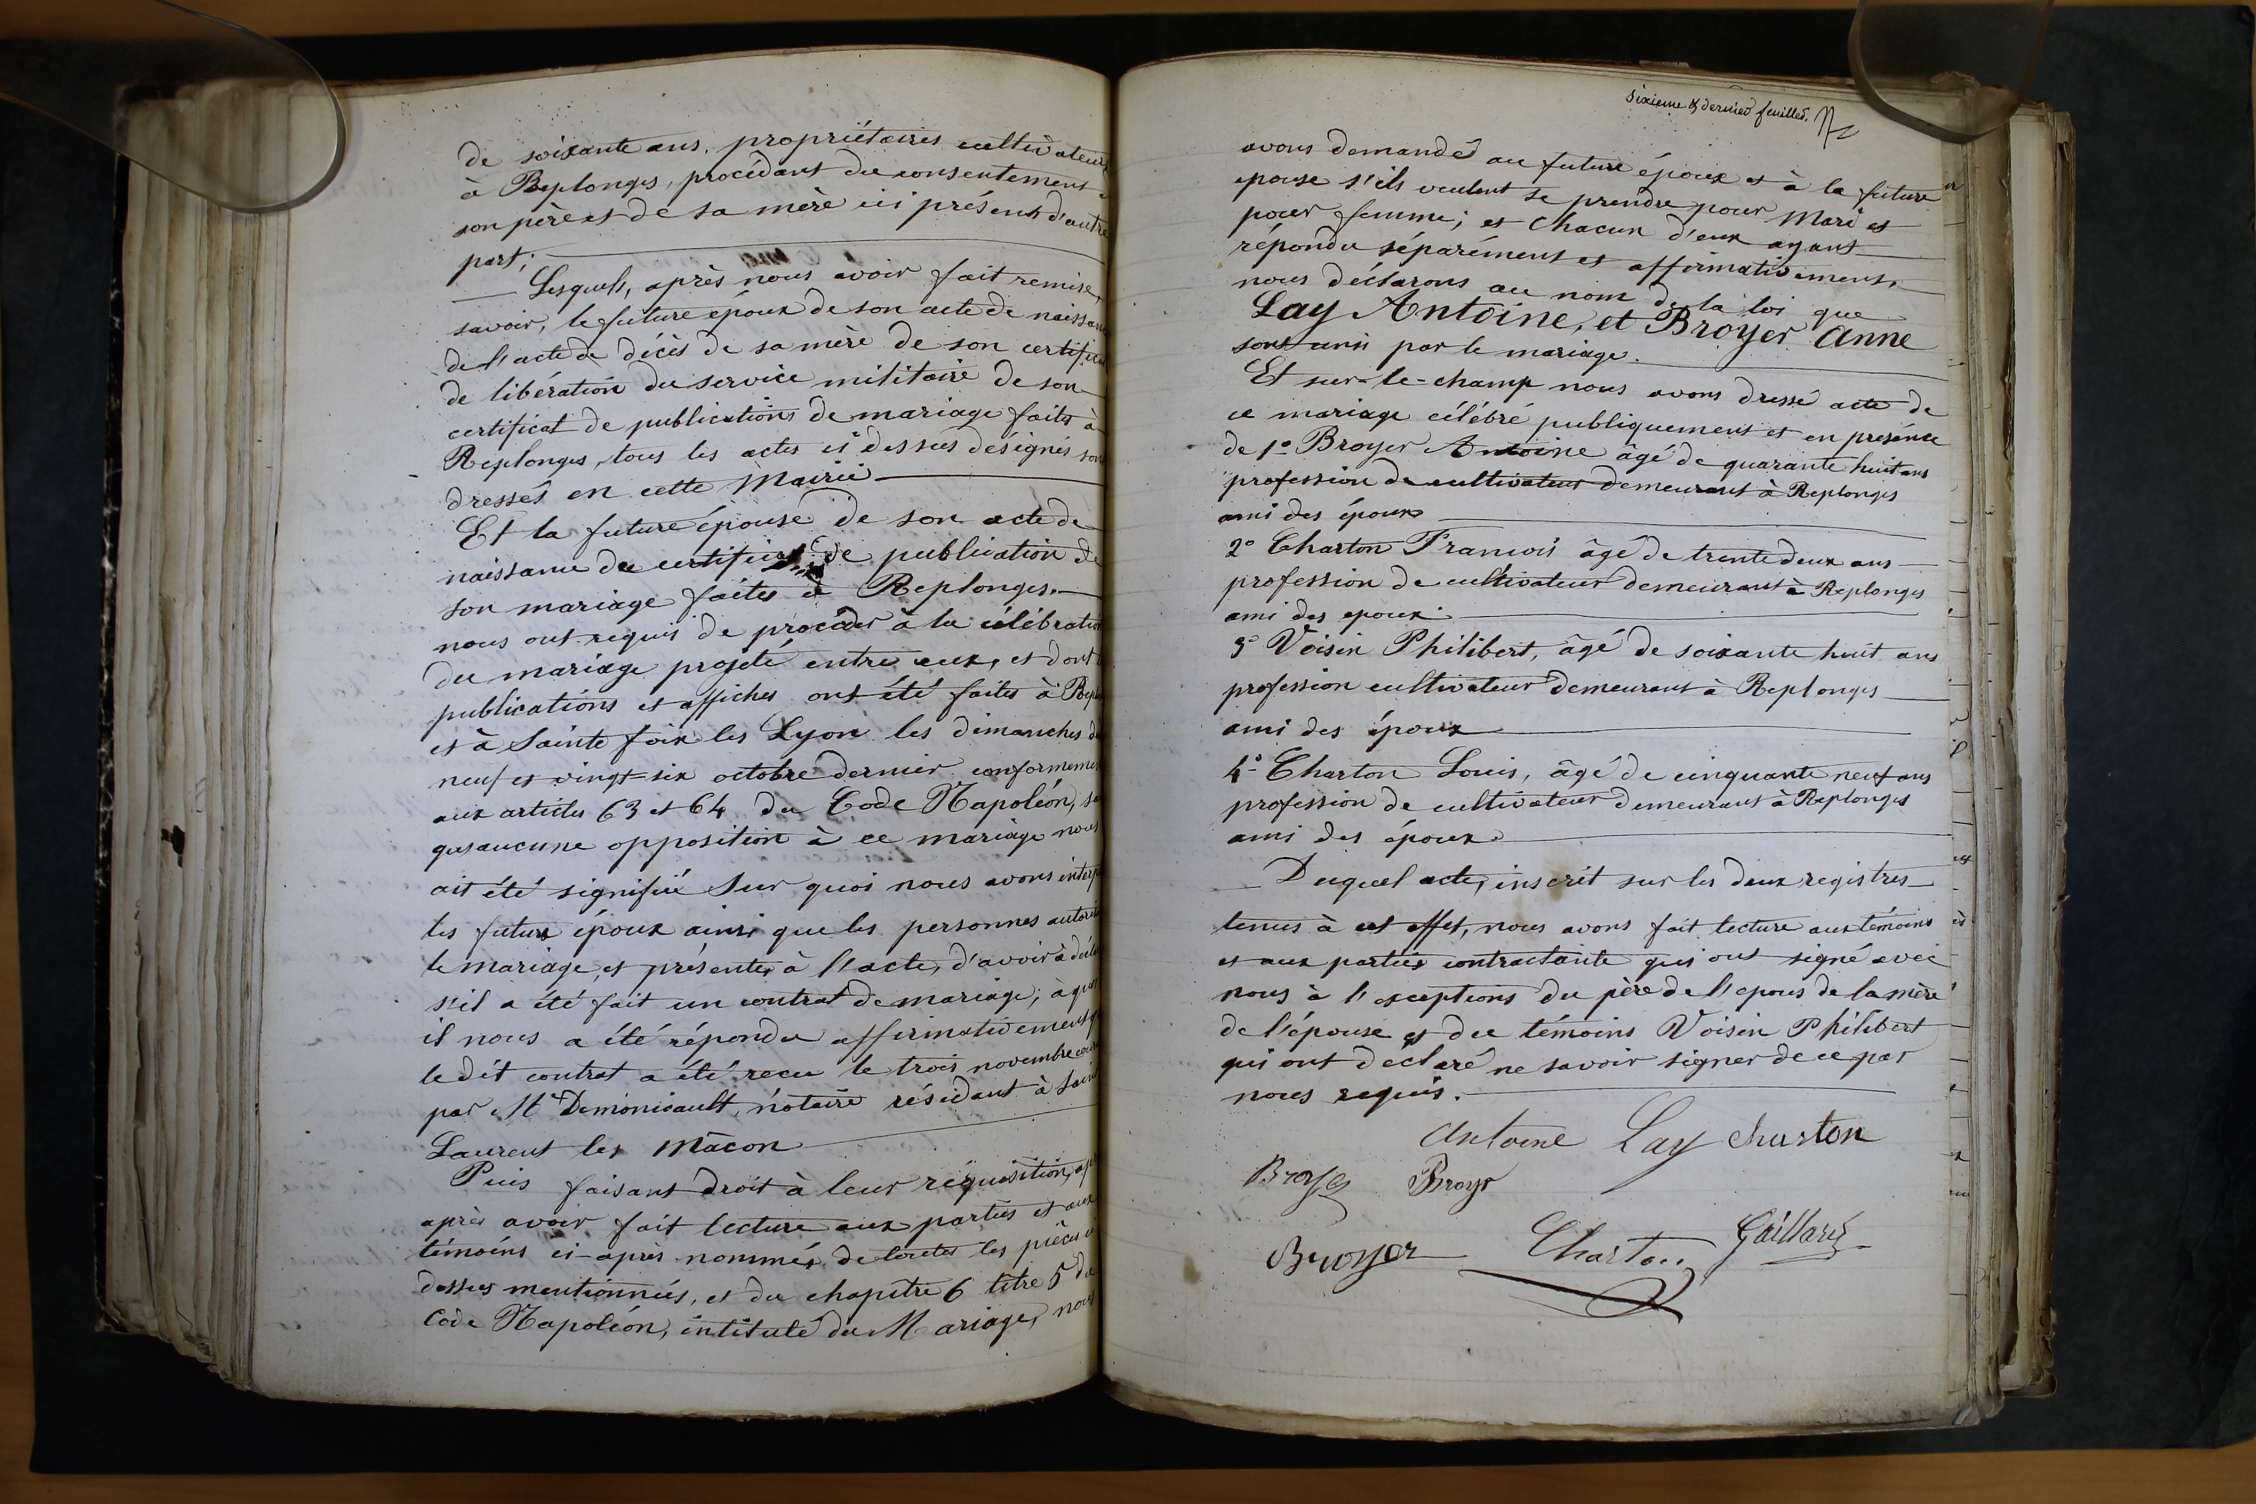 de soixante ans, propriétaires cultivateurs
à Replonges, procédant du consentement
son père et de sa mère ici présents d'autre
part;
Lesquels, après nous avoir fait remise,
savoir, le future époux de son acte de naissan
de l'acte de décès de sa mère de son certificat
de libération du service militaire de son
certificat de publications de mariage faits à
Replonges, tous les actes ci dessus désignés son
dressés en cette Mairie
Et la future épouse de son acte de
naissance du certificat de publication de
son mariage faites à Replonges.
nous ont requis de procéder à la célébration
du mariage projeté entre eux, et dont
publications et affiches ont été faites à Repl
et à Sainte foix les Lyon les dimanches d
neuf et vingt-six octobre dernier conformeme
aux articles 63 et 64 du Code Napoléon, sa
qu'aucune opposition à ce mariage nous
ait été signifiée Sur quoi nous avons interp
les futurs époux ainsi que les personnes autoris
le mariage, et présentes à l'acte, d'avoir à décla
s'il a été fait un contrat de mariage; à quoi
il nous a été répondu affirmativement q
le dit contrat a été recu le trois novembre cour
par Me Demoniaault, notaire résidant à Sain
Laurent les Mâcon
Puis faisant droit à leur réquisition, ap
après avoir fait lecture aux parties et aux
témoins ci-après nommés de toutes les pièces ci
dessus mentionnées, et du chapitre 6 titre 5 du
Code Napoléon, intitulé du Mariage, nous
Sixieme & dernier feuillet.
avons demandé au future époux et à la future
epouse s'ils veulent se prendre pour Mari et
pour femme; et chacun d'eux ayant
répondu séparément et affirmativement,
nous déclarons au nom de la loi que
Lay Antoine, et Broyer Anne
sont unis par le mariage.
Et sur-le-champ nous avons dressé acte de
ce mariage célébré publiquement et en présence
de 1° Broyer Antoine âgé de quarante huit ans
profession de cultivateur demeurant à Replonges
ami des époux
2° Charton Francois âgé de trente deux ans
profession de cultivateur demeurant à Replonges
ami des epoux
3° Voisin Philibert, âgé de soixante huit ans
profession cultivateur demeurant à Replonges
ami des époux
4° Charton Louis, âgé de cinquante neuf ans
profession de cultivateur demeurant à Replonges
ami des époux
Duquel acte, inscrit sur les deux registres
tenus à cet effet, nous avons fait lecture aux témoins
et aux parties contractante qui ont signé avec
nous à l'exceptions du père de l'epous de la mère
de l'épouse et du témoins Voisin Philibert
qui ont déclaré ne savoir signer de ce par
nous requis.
Antoine Lay Charton
Broyer Broyr
Broyer Charton Gaillard